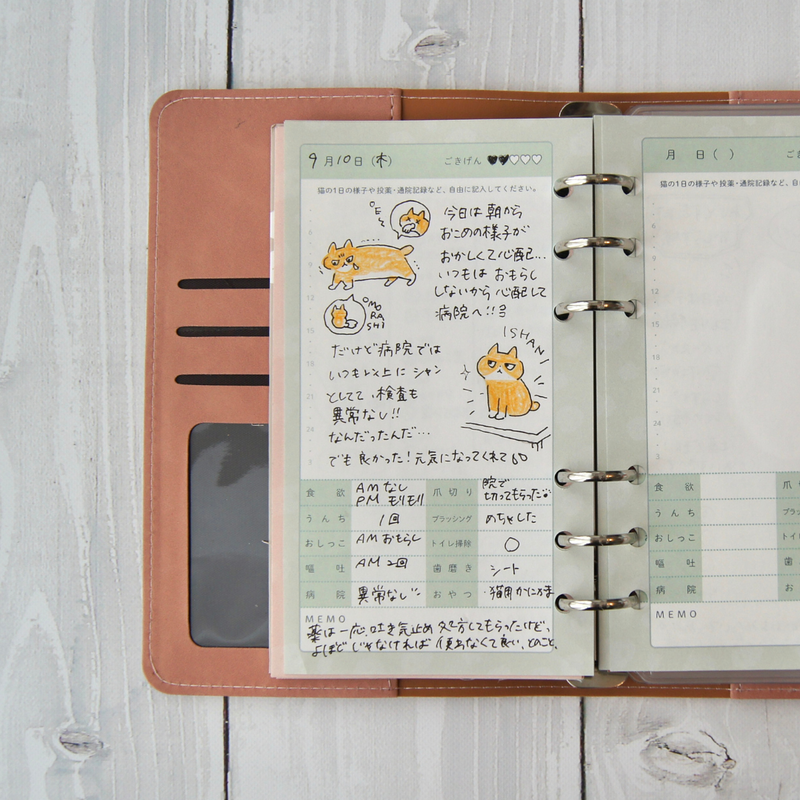 9月10日(木) ごきげん ♥♥♡♡♡
猫の1日の様子や投薬・通院記録など、自由に記入してください。
今日は朝から
おこめの様子が
おかしくて心配…
いつもは おもらし
しないから 心配して
病院へ!!
OMO
RA
SHI
だけど病院では
いつも以上に シャン
としてて、検査も
異常なし!!
なんだったんだ…
でも良かった!元気になってくれて
ISHANI
12
15
18
21
24
3
食欲 AMなし PM モリモリ
爪切り 院で切ってもらった
うんち 1回
ブラッシング めちゃした
おしっこ AMおもらし
トイレ掃除 ○
嘔吐 AM 2回
歯磨き シート
病院 異常なし
おやつ ・猫用かにかま
MEMO
薬は一応、吐き気止め処方してもらったけど、
よほどじゃなければ使わなくて良い、とのこと。
月 日( ) ごき
猫の1日の様子や投薬・通院記録など、自由に記入
食欲 爪
うんち ブラ
おしっこ トイ
嘔吐 歯
病院 お
MEMO